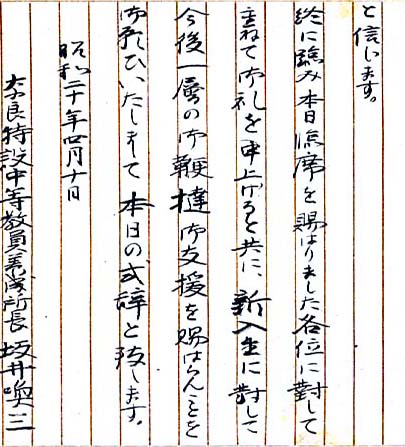 と信います。
終に臨み本日臨席を賜はりました各位に對して
重ねて御礼を申上げると共に、新入生に對して
今後一層の御鞭撻御支援を賜はらんことを
御願ひいたしまして本日の式辞と致します。
昭和二十年四月十日
奈良特設中等教員養成所長 坂井喚三